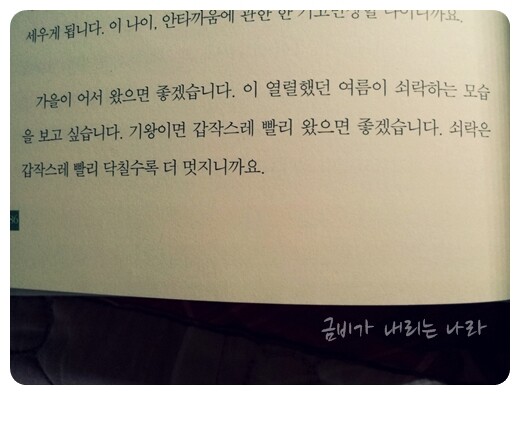 세우게 됩니다. 이 나이, 안타까움에 관한 한 기고만장할 나이니까요.
가을이 어서 왔으면 좋겠습니다. 이 열렬했던 여름이 쇠락하는 모습
을 보고 싶습니다. 기왕이면 갑작스레 빨리 왔으면 좋겠습니다. 쇠락은
갑작스레 빨리 닥칠수록 더 멋지니까요.
금비가 내리는 나라